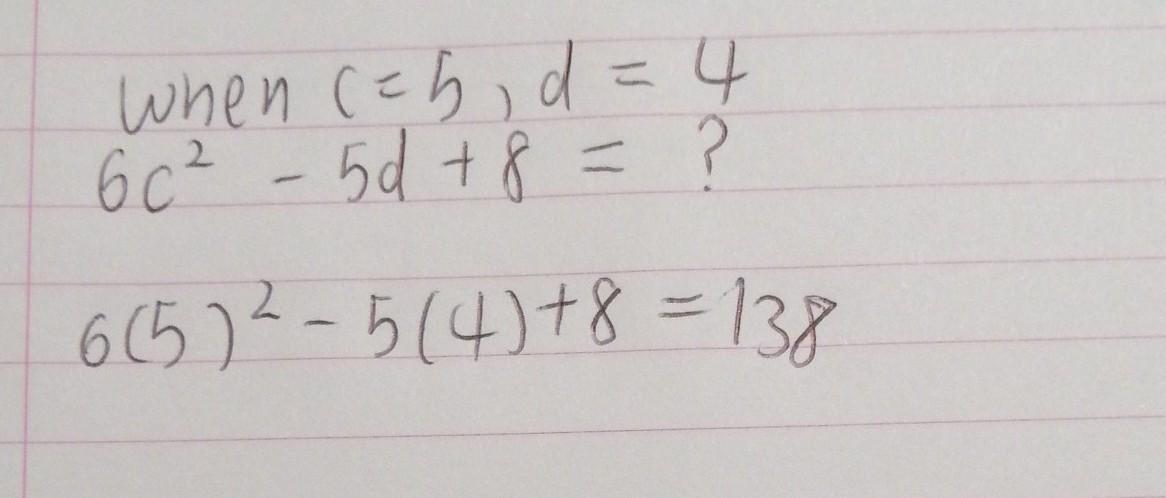 when c = 5, d = 4
6c² - 5d + 8 = ?
6(5)² - 5(4) + 8 = 138